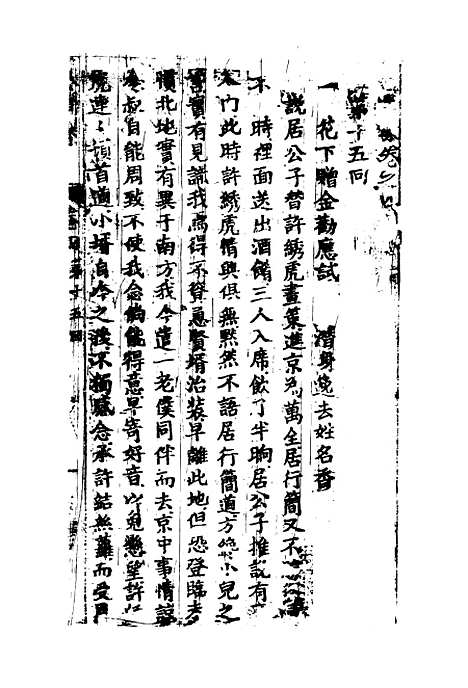 第十五回
花下贈金勸應試　潛身遠去姓名香
說居公子替許綉虎畫策進京為萬全居行簡又不
不一時裡面送出酒餚三人入席飲了半晌居公子推說有
入門此時許綉虎倚與俱無默然不語居行簡道方小兒之
言實有見識我焉得不資急賢壻治裝早離此地但恐登臨去
北地實有異于南方我今遣一老僕同伴而去京中事情諒
自能周致不使我念倘能得意早寄好音以免懸望許
虎連連頓首道小壻自今之後不獨感念承許結絲蘿而受